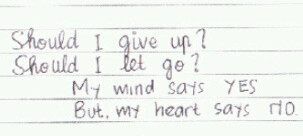 Should I give up?
Should I let go?
My mind says YES
But, my heart says NO